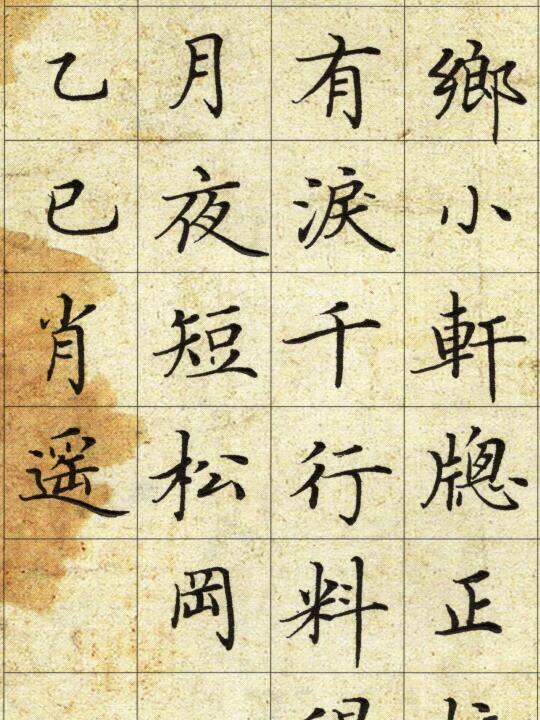 鄉小軒牕正
有淚千行料
月夜短松岡
乙巳肖遥